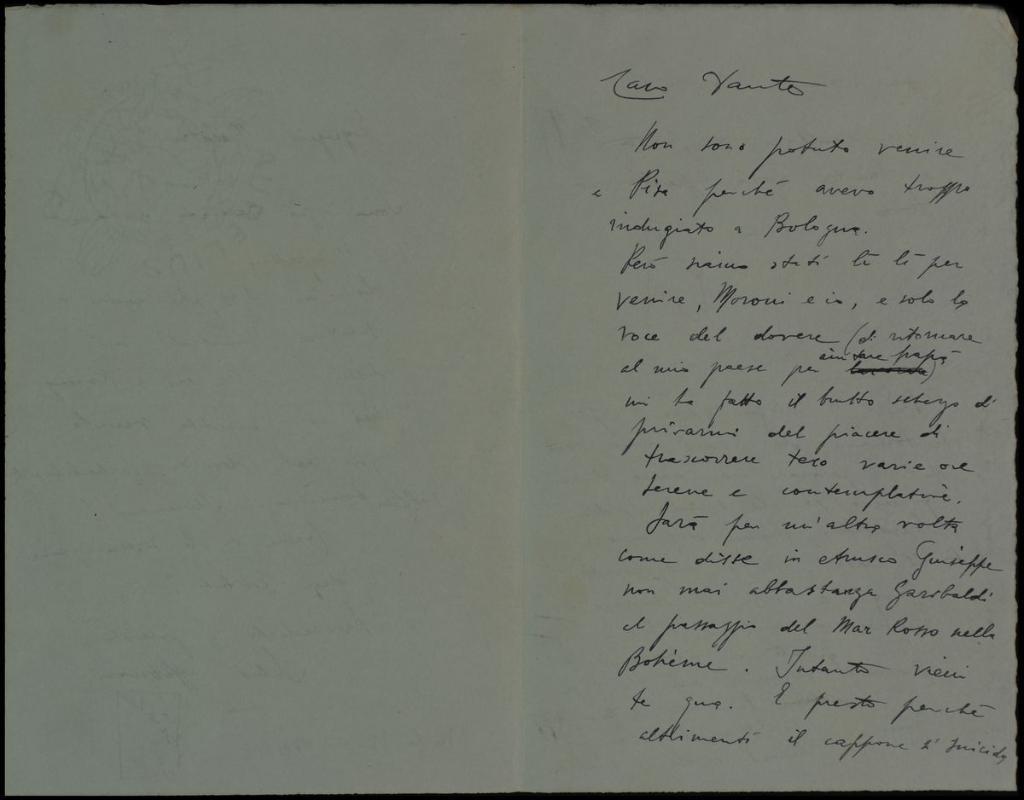 Caro Vanto
Non sono potuto venire
a Pisa perché avevo troppo
indugiato a Bologna.
Però siamo stati lì lì per
venire, Moroni e io, e solo la
voce del dovere (di ritornare
al mio paese per aiutare papà)
mi ha fatto il brutto scherzo di
privarmi del piacere di
trascorrere teco varie ore
serene e contemplative.
Sarà per un'altra volta
come disse in Giuseppe
non mai abbastanza Garibaldi
al passaggio del Mar Rosso nella
Bohème. Intanto vieni
te qua. E presto perché
altrimenti il cappone si suicida